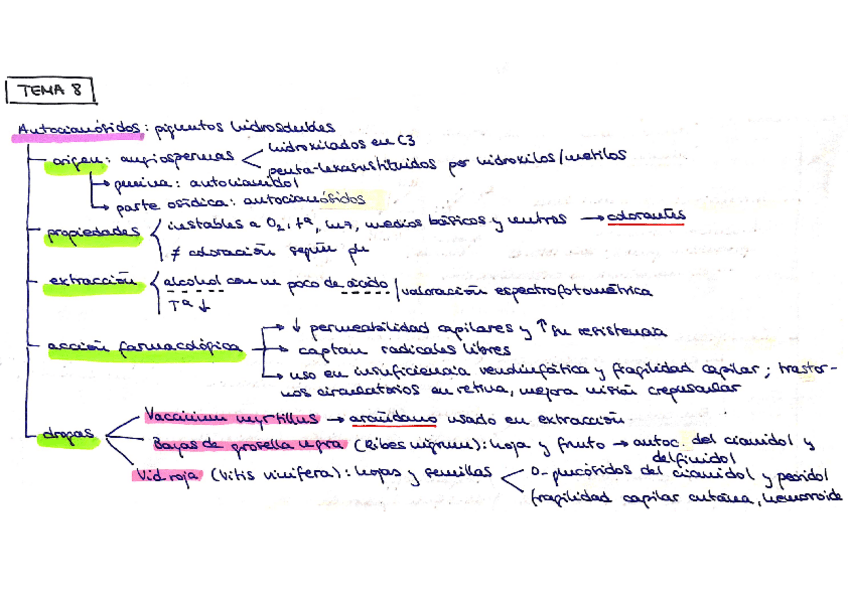 TEMA 8
Autocianósidos: pigmentos hidrosolubles
origen: angiospermas < hidroxilados en C3
penta-hexasustituidos por hidroxilos/metilos
→ genina: autocianidol
→ parte osídica: autocianósidos
propiedades < inestables a O2, tª, luz, medios básicos y neutros → colorantes
≠ coloración según pH
extracción < alcohol con un poco de ácido / valoración espectrofotométrica
Tª ↓
acción farmacológica → ↓ permeabilidad capilares y ↑ su resistencia
→ captan radicales libres
→ uso en insuficiencia venolinfática y fragilidad capilar; trastor-
nos circulatorios en retina, mejora visión crepuscular
drogas
Vaccinium myrtillus → arándano usado en extracción.
Bayas de grosella negra (Ribes nigrum): hoja y fruto → autoc. del cianidol y
delfinidol
Vid roja (Vitis vinifera): hojas y semillas < O-glucósidos del cianidol y peonidol
fragilidad capilar cutánea, hemorroide